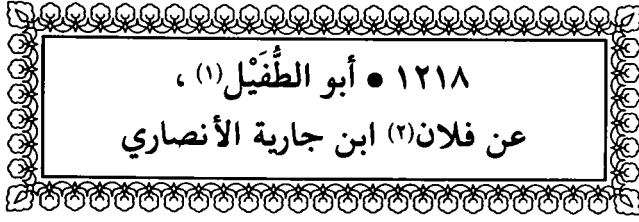 ١٢١٨ • أبو الطُّفَيْل(١) ،
عن فلان(٢) ابن جارية الأنصاري